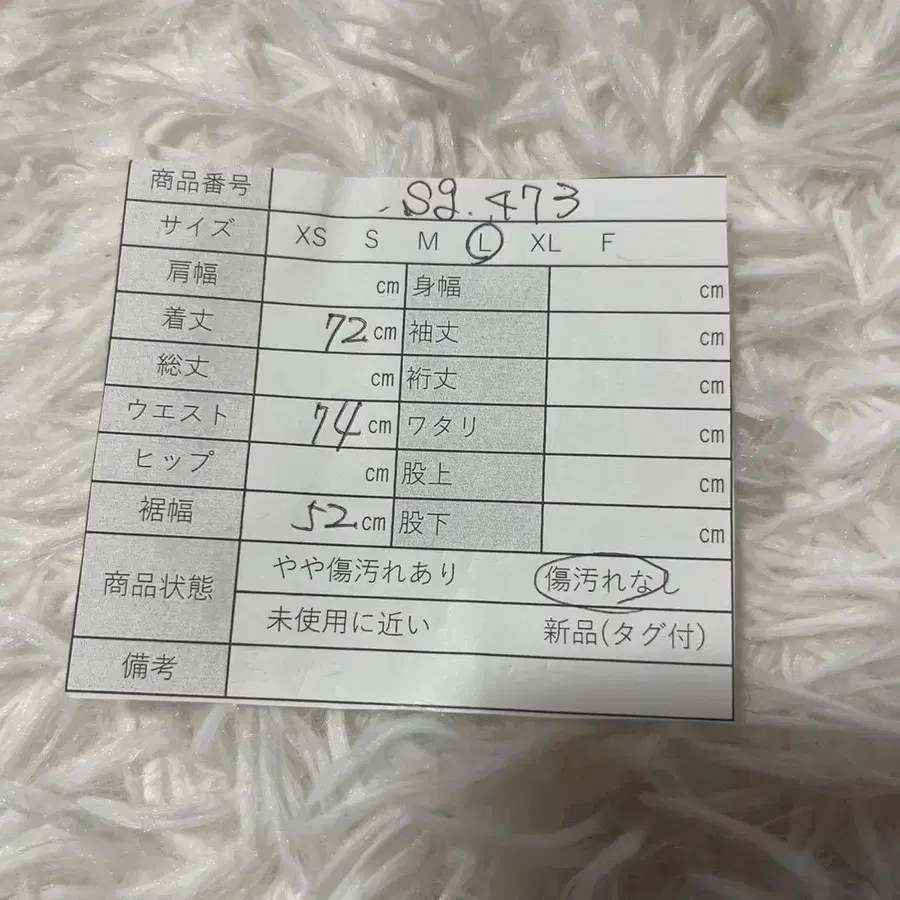 商品番号 Sg.473
サイズ XS S M L XL F
肩幅 cm 身幅 cm
着丈 72 cm 袖丈 cm
総丈 cm 裄丈 cm
ウエスト 74 cm ワタリ cm
ヒップ cm 股上 cm
裾幅 52 cm 股下 cm
商品状態 やや傷汚れあり 傷汚れなし
未使用に近い 新品(タグ付)
備考